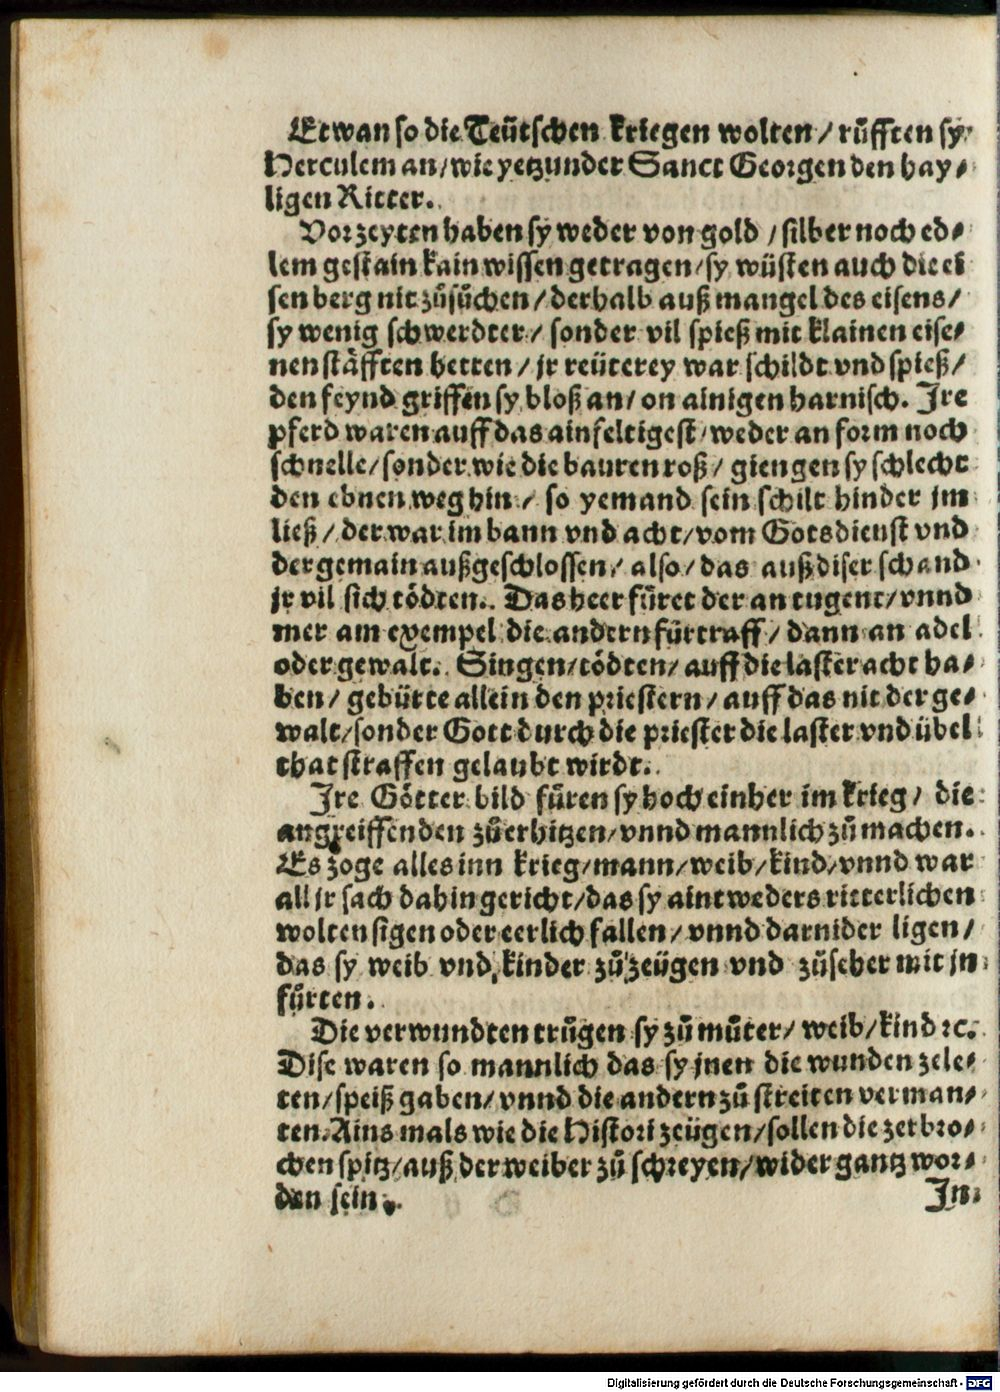 Etwan so die Teütschen kriegen wolten / růfften sy
Herculem an / wie yetzunder Sanct Georgen den hay⸗
ligen Ritter.
Vorzeyten haben sy weder von gold / silber noch ed⸗
lem gestain kain wissen getragen / sy wüsten auch die ei
sen berg nit zůsůchen / derhalb auß mangel des eisens /
sy wenig schwerdter / sonder vil spieß mit klainen eise⸗
nen stäfften hetten / jr reüterey war schildt vnd spieß /
den feynd griffen sy bloß an / on ainigen harnisch. Ire
pferd waren auff das ainfeltigest / weder an form noch
schnelle / sonder wie die bauren roß / giengen sy schlecht
den ebnen weg hin / so yemand sein schilt hinder jm
ließ / der war im bann vnd acht / vom Gotsdienst vnd
der gemain außgeschlossen / also / das auß diser schand
jr vil sich tödten. Das heer füret der an tugent / vnnd
mer am exempel die andern fürtraff / dann an adel
oder gewalt. Singen / tödten / auff die laster acht ha⸗
ben / gebütte allein den priestern / auff das nit der ge⸗
walt / sonder Gott durch die priester die laster vnd übel
that straffen gelaubt wirdt.
Ire Götter bild füren sy hoch einher im krieg / die
angreiffenden zů erhitzen / vnnd mannlich zů machen.
Es zoge alles inn krieg / mann / weib / kind / vnnd war
all jr sach dahin gericht / das sy aintweders ritterlichen
wolten sigen oder eerlich fallen / vnnd darnider ligen /
das sy weib vnd kinder zů zeügen vnd zůseher mit jn
fürten.
Die verwundten trůgen sy zů můter / weib / kind ꝛc.
Dise waren so mannlich das sy jnen die wunden zele⸗
ten / speiß gaben / vnnd die andern zů streiten verman⸗
ten. Ains mals wie die Histori zeügen / sollen die zerbro⸗
chen spitz / auß der weiber zů schreyen / wider gantz wor⸗
den sein.
In
Digitalisierung gefördert durch die Deutsche Forschungsgemeinschaft - DFG